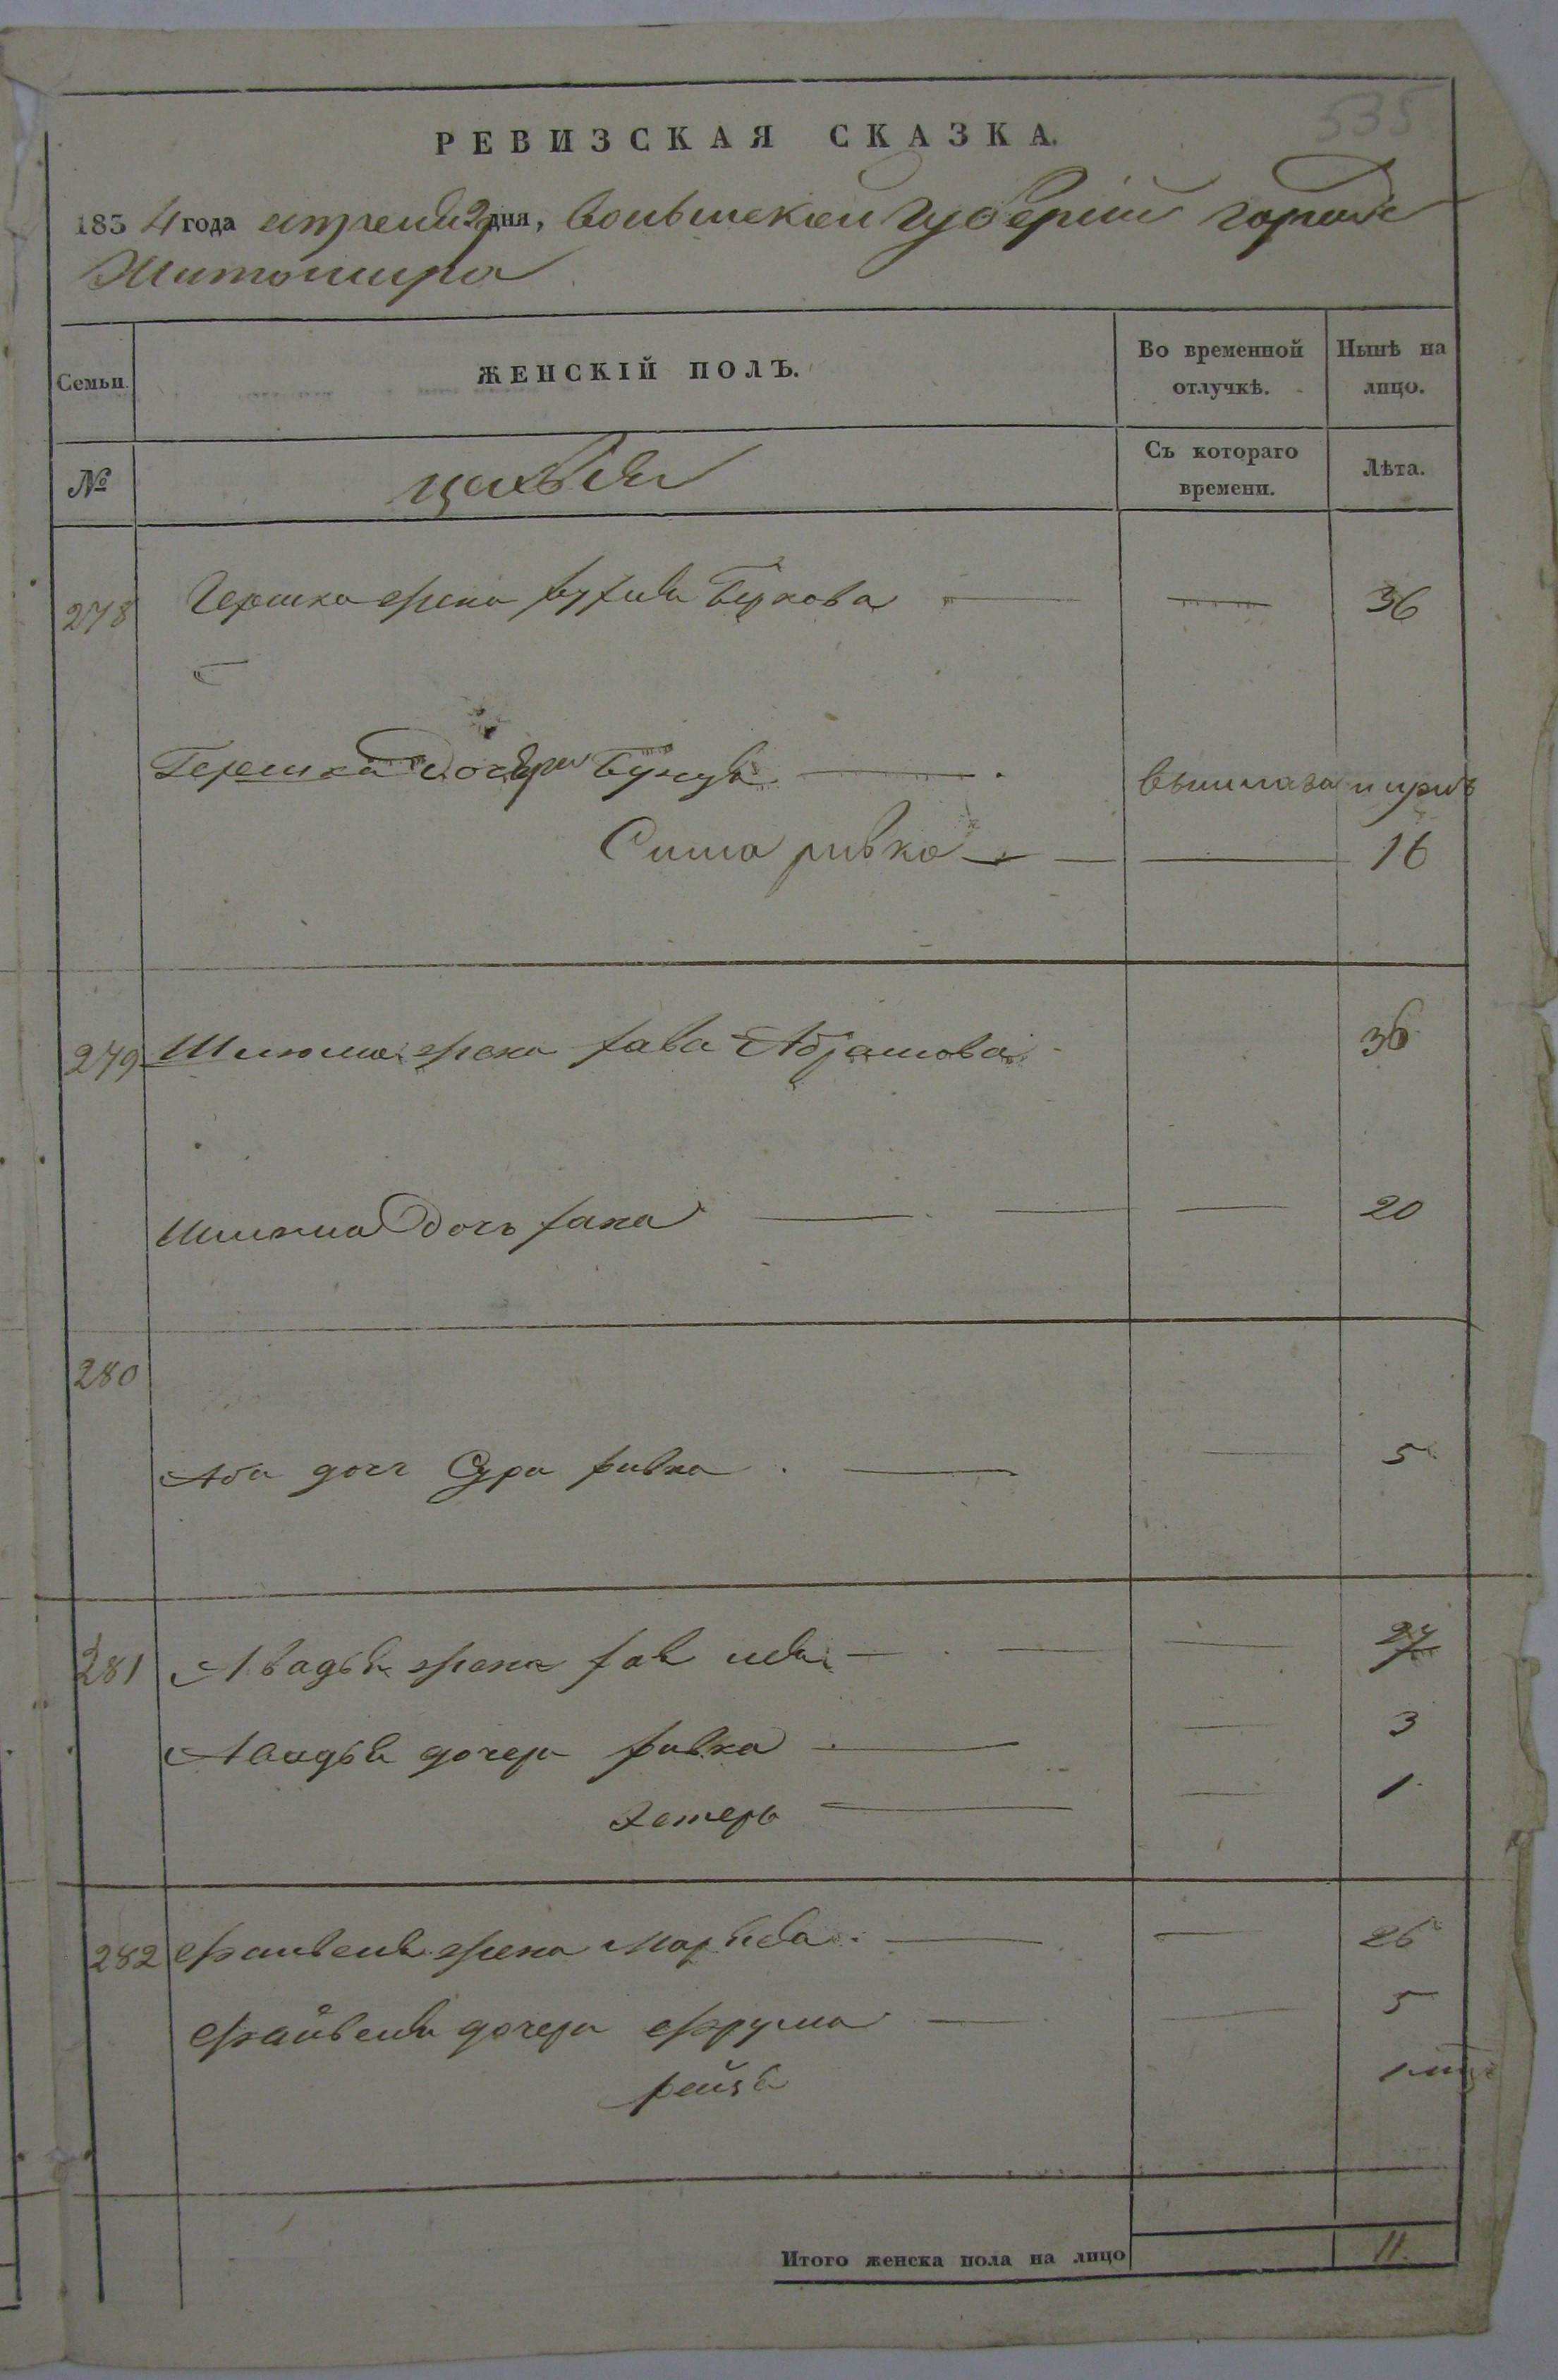 535
РЕВИЗСКАЯ СКАЗКА.
1834 года апреля 2 дня, Волынской Губерніи города
Житомира
Семьи.
ЖЕНСКІЙ ПОЛЪ.
Во временной отлучкѣ.
Нынѣ на лицо.
№
Съ котораго времени.
Лѣта.
278 Гершка жена Беркова 36
Гершка дочери вышла за
Сима ривка 16
279 Шлюма жена хава Абрамова 36
Шлюма дочь хана 20
280
Аба доч Сура ривка 5
281 Авадья жена 27
Авадья дочери ривка 3
Эстеръ 1
282 Файвеля жена 26
Файвеля дочери Фрума 5
рейзя 1
Итого женска пола на лицо 11.